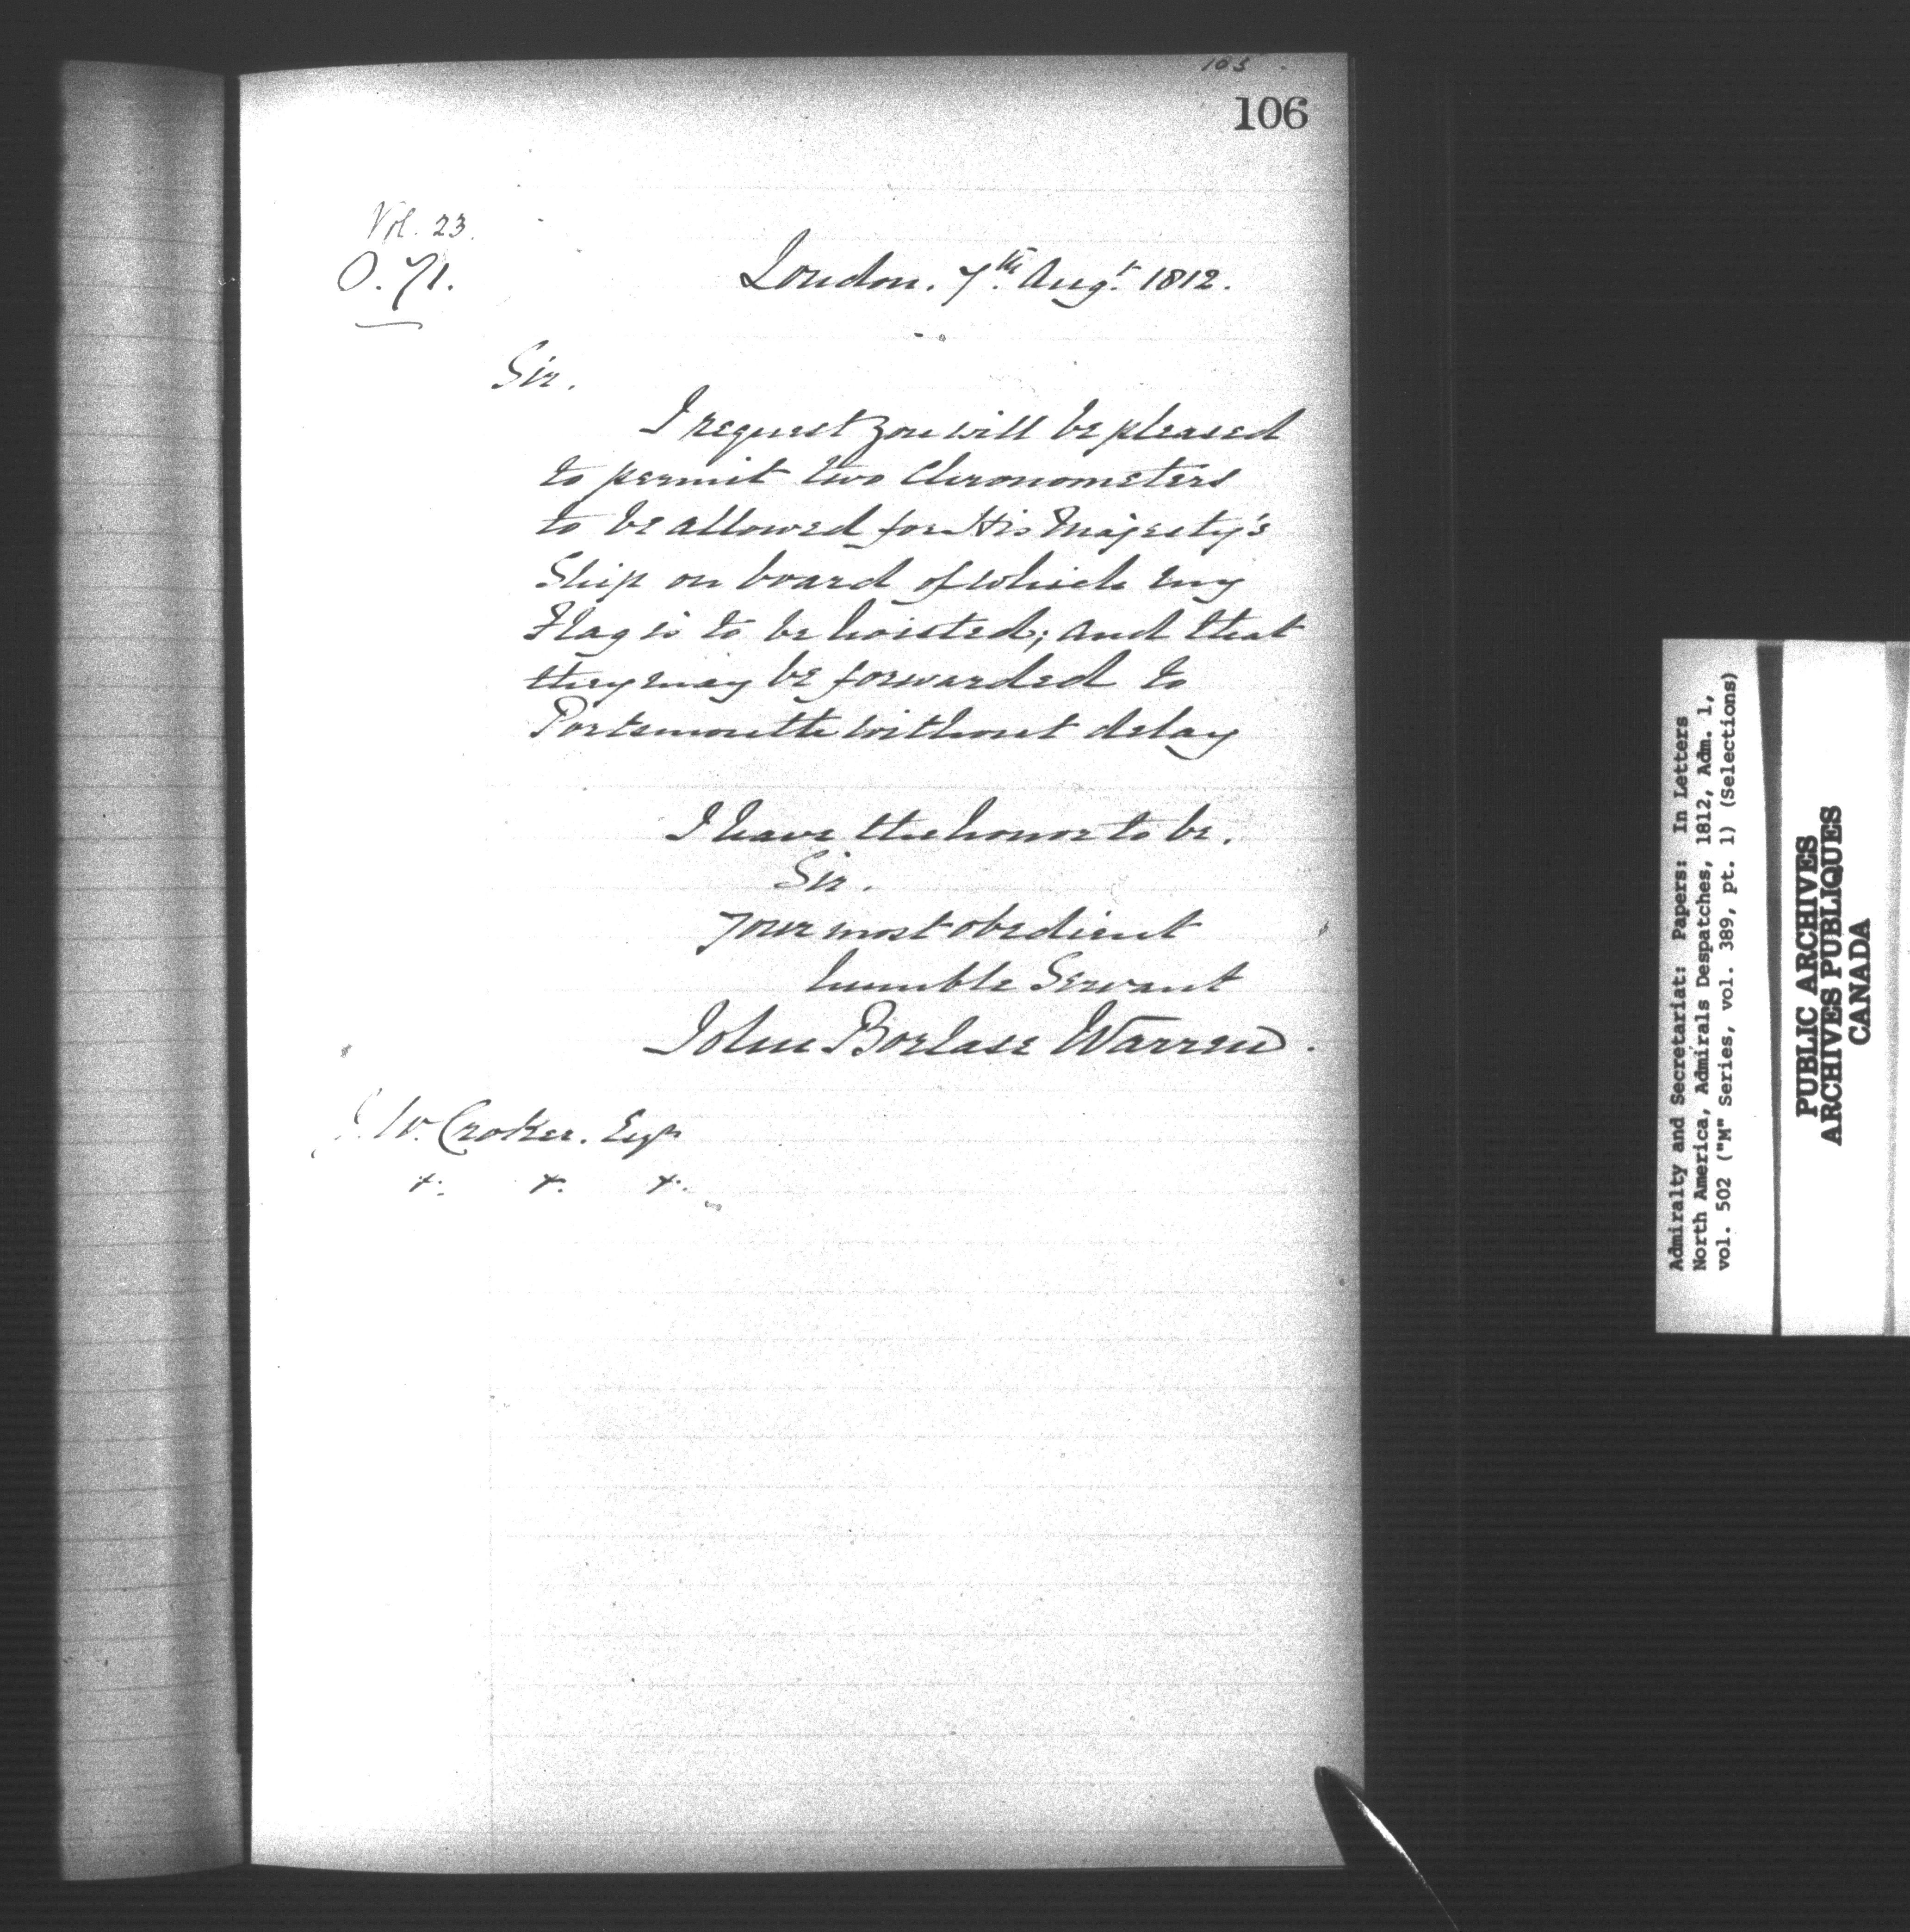 103
106
Vol. 23.
O. 71.
London. 7th. Augt. 1812.
Sir.
I request you will be pleased
to permit two Chronometers
to be allowed for His Majesty's
Ship on board of which my
Flag is to be hoisted; and that
they may be forwarded to
Portsmouth without delay
I have the honor to be.
Sir.
Your most obedient
humble Servant
John Borlase Warren.
J. W. Croker. Esqr
+. +. +.
Admiralty and Secretariat: Papers: In Letters
North America, Admirals Despatches, 1812, Adm. 1,
vol. 502 ("M" Series, vol. 389, pt. 1) (Selections)
PUBLIC ARCHIVES
ARCHIVES PUBLIQUES
CANADA